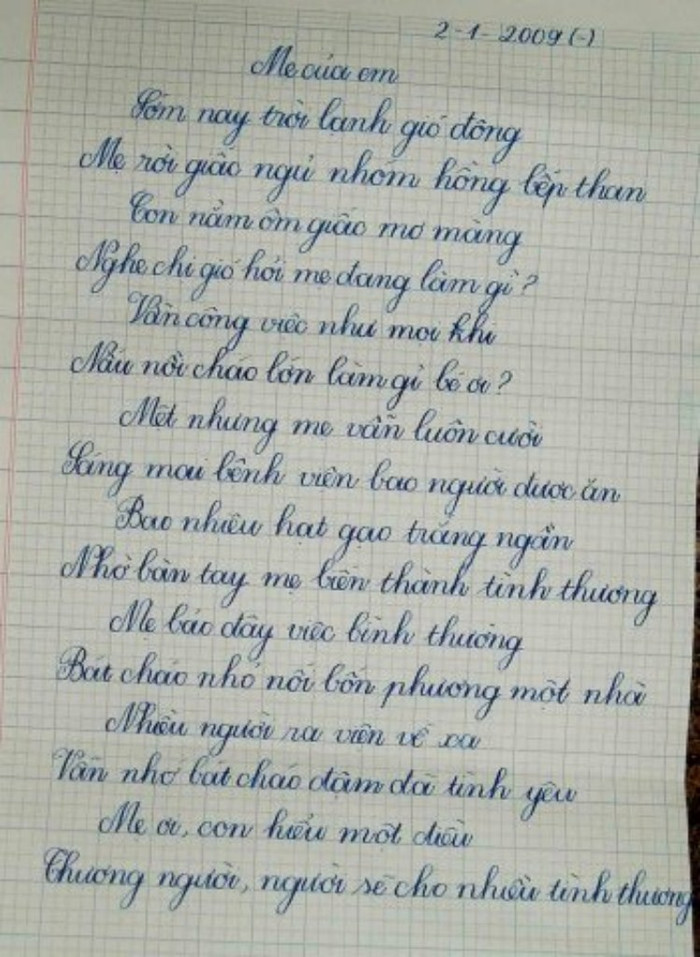 2-1-2009 (-)
Mẹ của em
Sớm nay trời lạnh gió đông
Mẹ rời giấc ngủ nhóm hồng bếp than
Con nằm ôm giấc mơ màng
Nghe chị gió hỏi mẹ đang làm gì?
Vẫn công việc như mọi khi
Nấu nồi cháo lớn làm gì bé ơi?
Mệt nhưng mẹ vẫn luôn cười
Sáng mai bệnh viện bao người được ăn
Bao nhiêu hạt gạo trắng ngần
Nhờ bàn tay mẹ biến thành tình thương
Mẹ bảo đây việc bình thường
Bát cháo nhỏ nối bốn phương một nhà
Nhiều người ra viện về xa
Vẫn nhớ bát cháo đậm đà tình yêu
Mẹ ơi, con hiểu một điều
Thương người, người sẽ cho nhiều tình thương